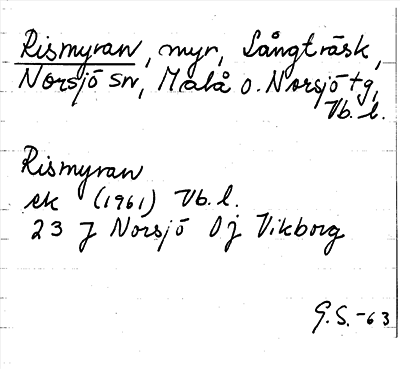 Rismyran, myr, Långträsk,
Norsjö sn, Malå o. Norsjö tg,
Vb. l.
Rismyran
ek (1961) Vb. l.
23 J Norsjö 0 j Vikborg
G. S. -63